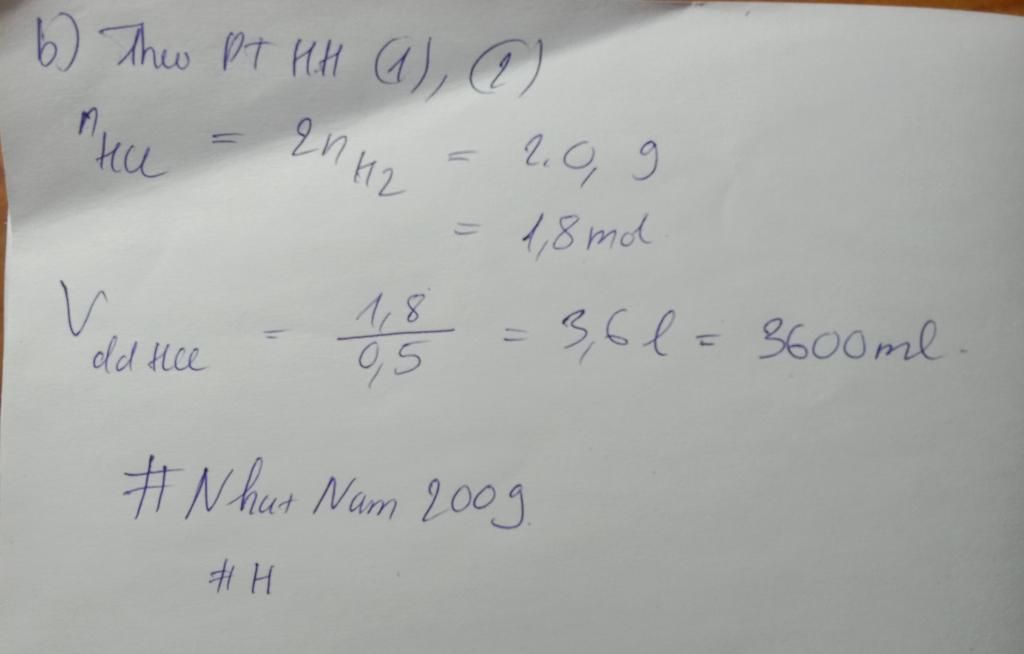 b) Theo PT HH (1), (2)
nHCl = 2nH2 = 2.0,9
= 1,8 mol
Vdd HCl = 1,8/0,5 = 3,6 l = 3600 ml.
# Nhat Nam 200g
# H